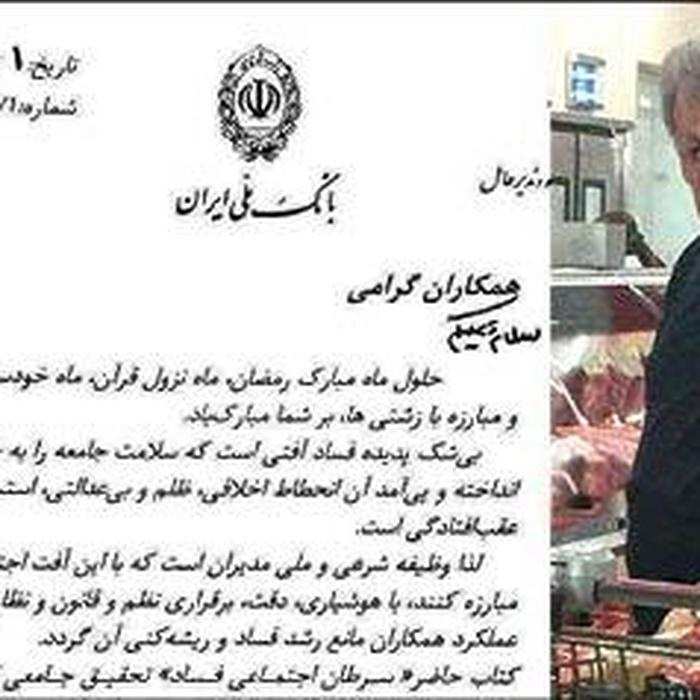 تاریخ: ۱
شماره: ۱/
بانک ملی ایران
مدیرعامل
همکاران گرامی
سلام علیکم
حلول ماه مبارک رمضان، ماه نزول قرآن، ماه
و مبارزه با زشتی ها، بر شما مبارک‌باد.
بی‌شک پدیده فساد آفتی است که سلامت جامعه را به
انداخته و پی‌آمد آن انحطاط اخلاقی، ظلم و بی‌عدالتی،
عقب‌افتادگی است.
لذا وظیفه شرعی و ملی مدیران است که با این آفت
مبارزه کنند، با هوشیاری، دقت، برقراری نظم و قانون و
عملکرد همکاران مانع رشد فساد و ریشه‌کنی آن گردد.
کتاب حاضر« سرطان اجتماعی فساد» تحقیق جامعی